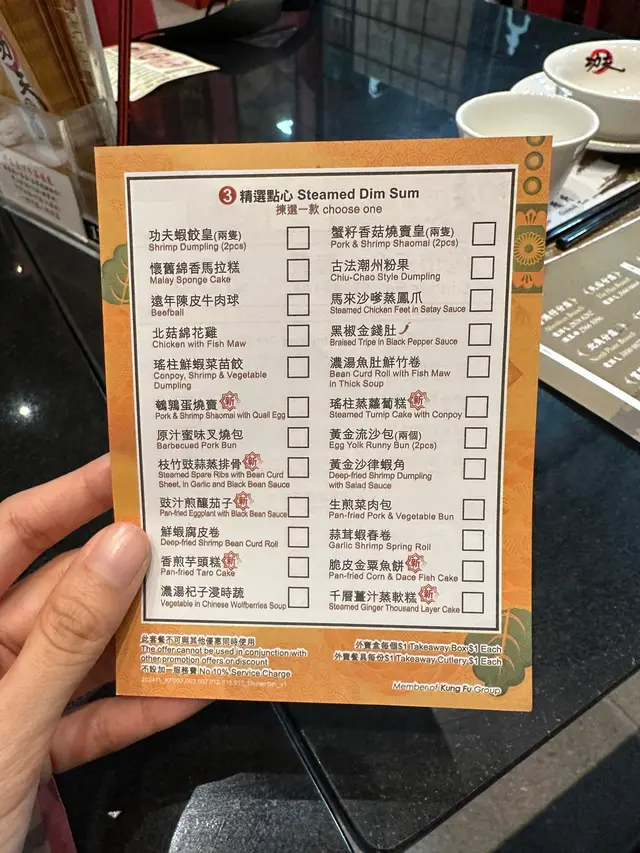 3 精選點心 Steamed Dim Sum
揀選一款 choose one
功夫蝦餃皇(兩隻)
Shrimp Dumpling (2pcs)
懷舊綿香馬拉糕
Malay Sponge Cake
遠年陳皮牛肉球
Beefball
北菇綿花雞
Chicken with Fish Maw
瑤柱鮮蝦菜苗餃
Conpoy, Shrimp & Vegetable
Dumpling
鵪鶉蛋燒賣 新
Pork & Shrimp Shaomai with Quail Egg
原汁蜜味叉燒包
Barbecued Pork Bun
枝竹豉蒜蒸排骨 新
Steamed Spare Ribs with Bean Curd
Sheet, in Garlic and Black Bean Sauce
豉汁煎釀茄子 新
Pan-fried Eggplant with Black Bean Sauce
鮮蝦腐皮卷
Deep-fried Shrimp Bean Curd Roll
香煎芋頭糕 新
Pan-fried Taro Cake
濃湯杞子浸時蔬
Vegetable in Chinese Wolfberries Soup
蟹籽香菇燒賣皇(兩隻)
Pork & Shrimp Shaomai (2pcs)
古法潮州粉果
Chiu-Chao Style Dumpling
馬來沙嗲蒸鳳爪
Steamed Chicken Feet in Satay Sauce
黑椒金錢肚
Braised Tripe in Black Pepper Sauce
濃湯魚肚鮮竹卷
Bean Curd Roll with Fish Maw
in Thick Soup
瑤柱蒸蘿蔔糕 新
Steamed Turnip Cake with Conpoy
黃金流沙包(兩個)
Egg Yolk Runny Bun (2pcs)
黃金沙律蝦角
Deep-fried Shrimp Dumpling
with Salad Sauce
生煎菜肉包
Pan-fried Pork & Vegetable Bun
蒜茸蝦春卷
Garlic Shrimp Spring Roll
脆皮金粟魚餅 新
Pan-fried Corn & Dace Fish Cake
千層薑汁蒸軟糕 新
Steamed Ginger Thousand Layer Cake
此套餐不可與其他優惠同時使用
The offer cannot be used in conjunction with
other promotion offers or discount
不設加一服務費 No 10% Service Charge
外賣盒每個$1 Takeaway Box $1 Each
外賣餐具每份$1 Takeaway Cutlery $1 Each
Member of Kung Fu Group
功夫